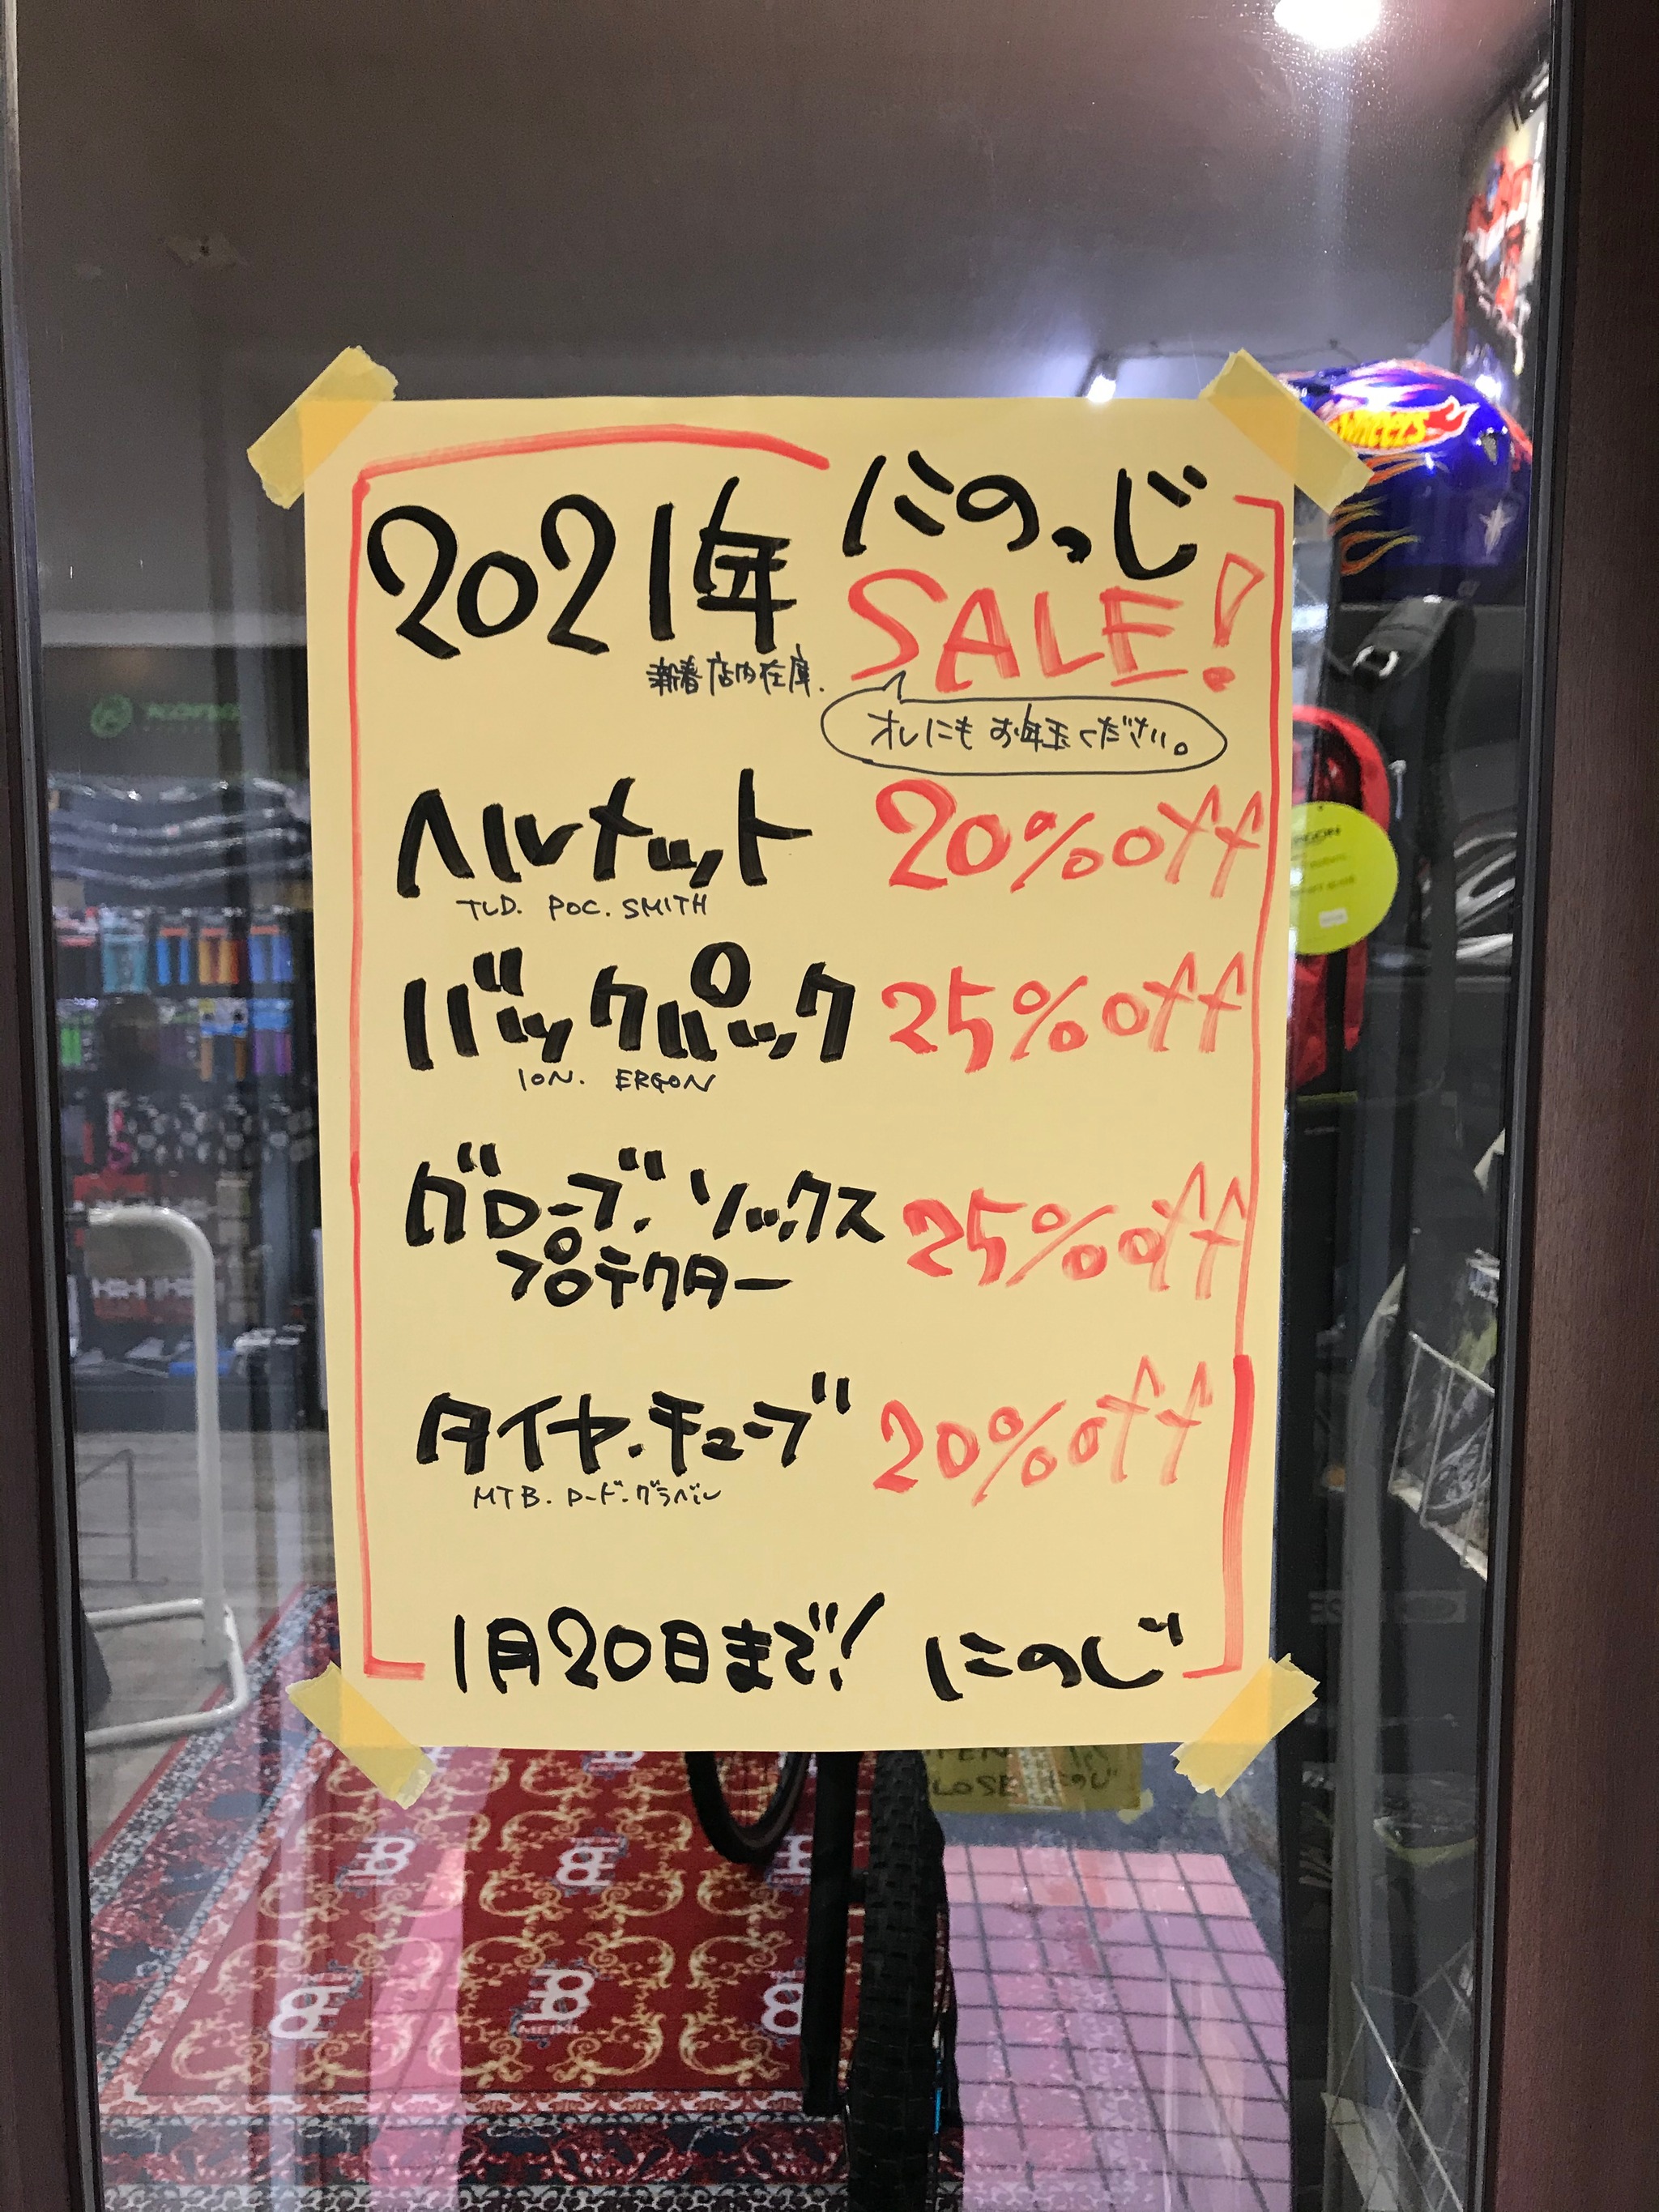 2021年 にのっじ
SALE!
新春店内在庫.
オレにもお年玉ください。
ヘルメット 20%off
TLD. POC. SMITH
バックパック 25%off
ION. ERGON
グローブ. ソックス 25%off
プロテクター
タイヤ.チューブ 20%off
MTB. ロード.グラベル
1月20日まで! にのじ
wheels
ERGON
CLOSE にのじ
MEINL